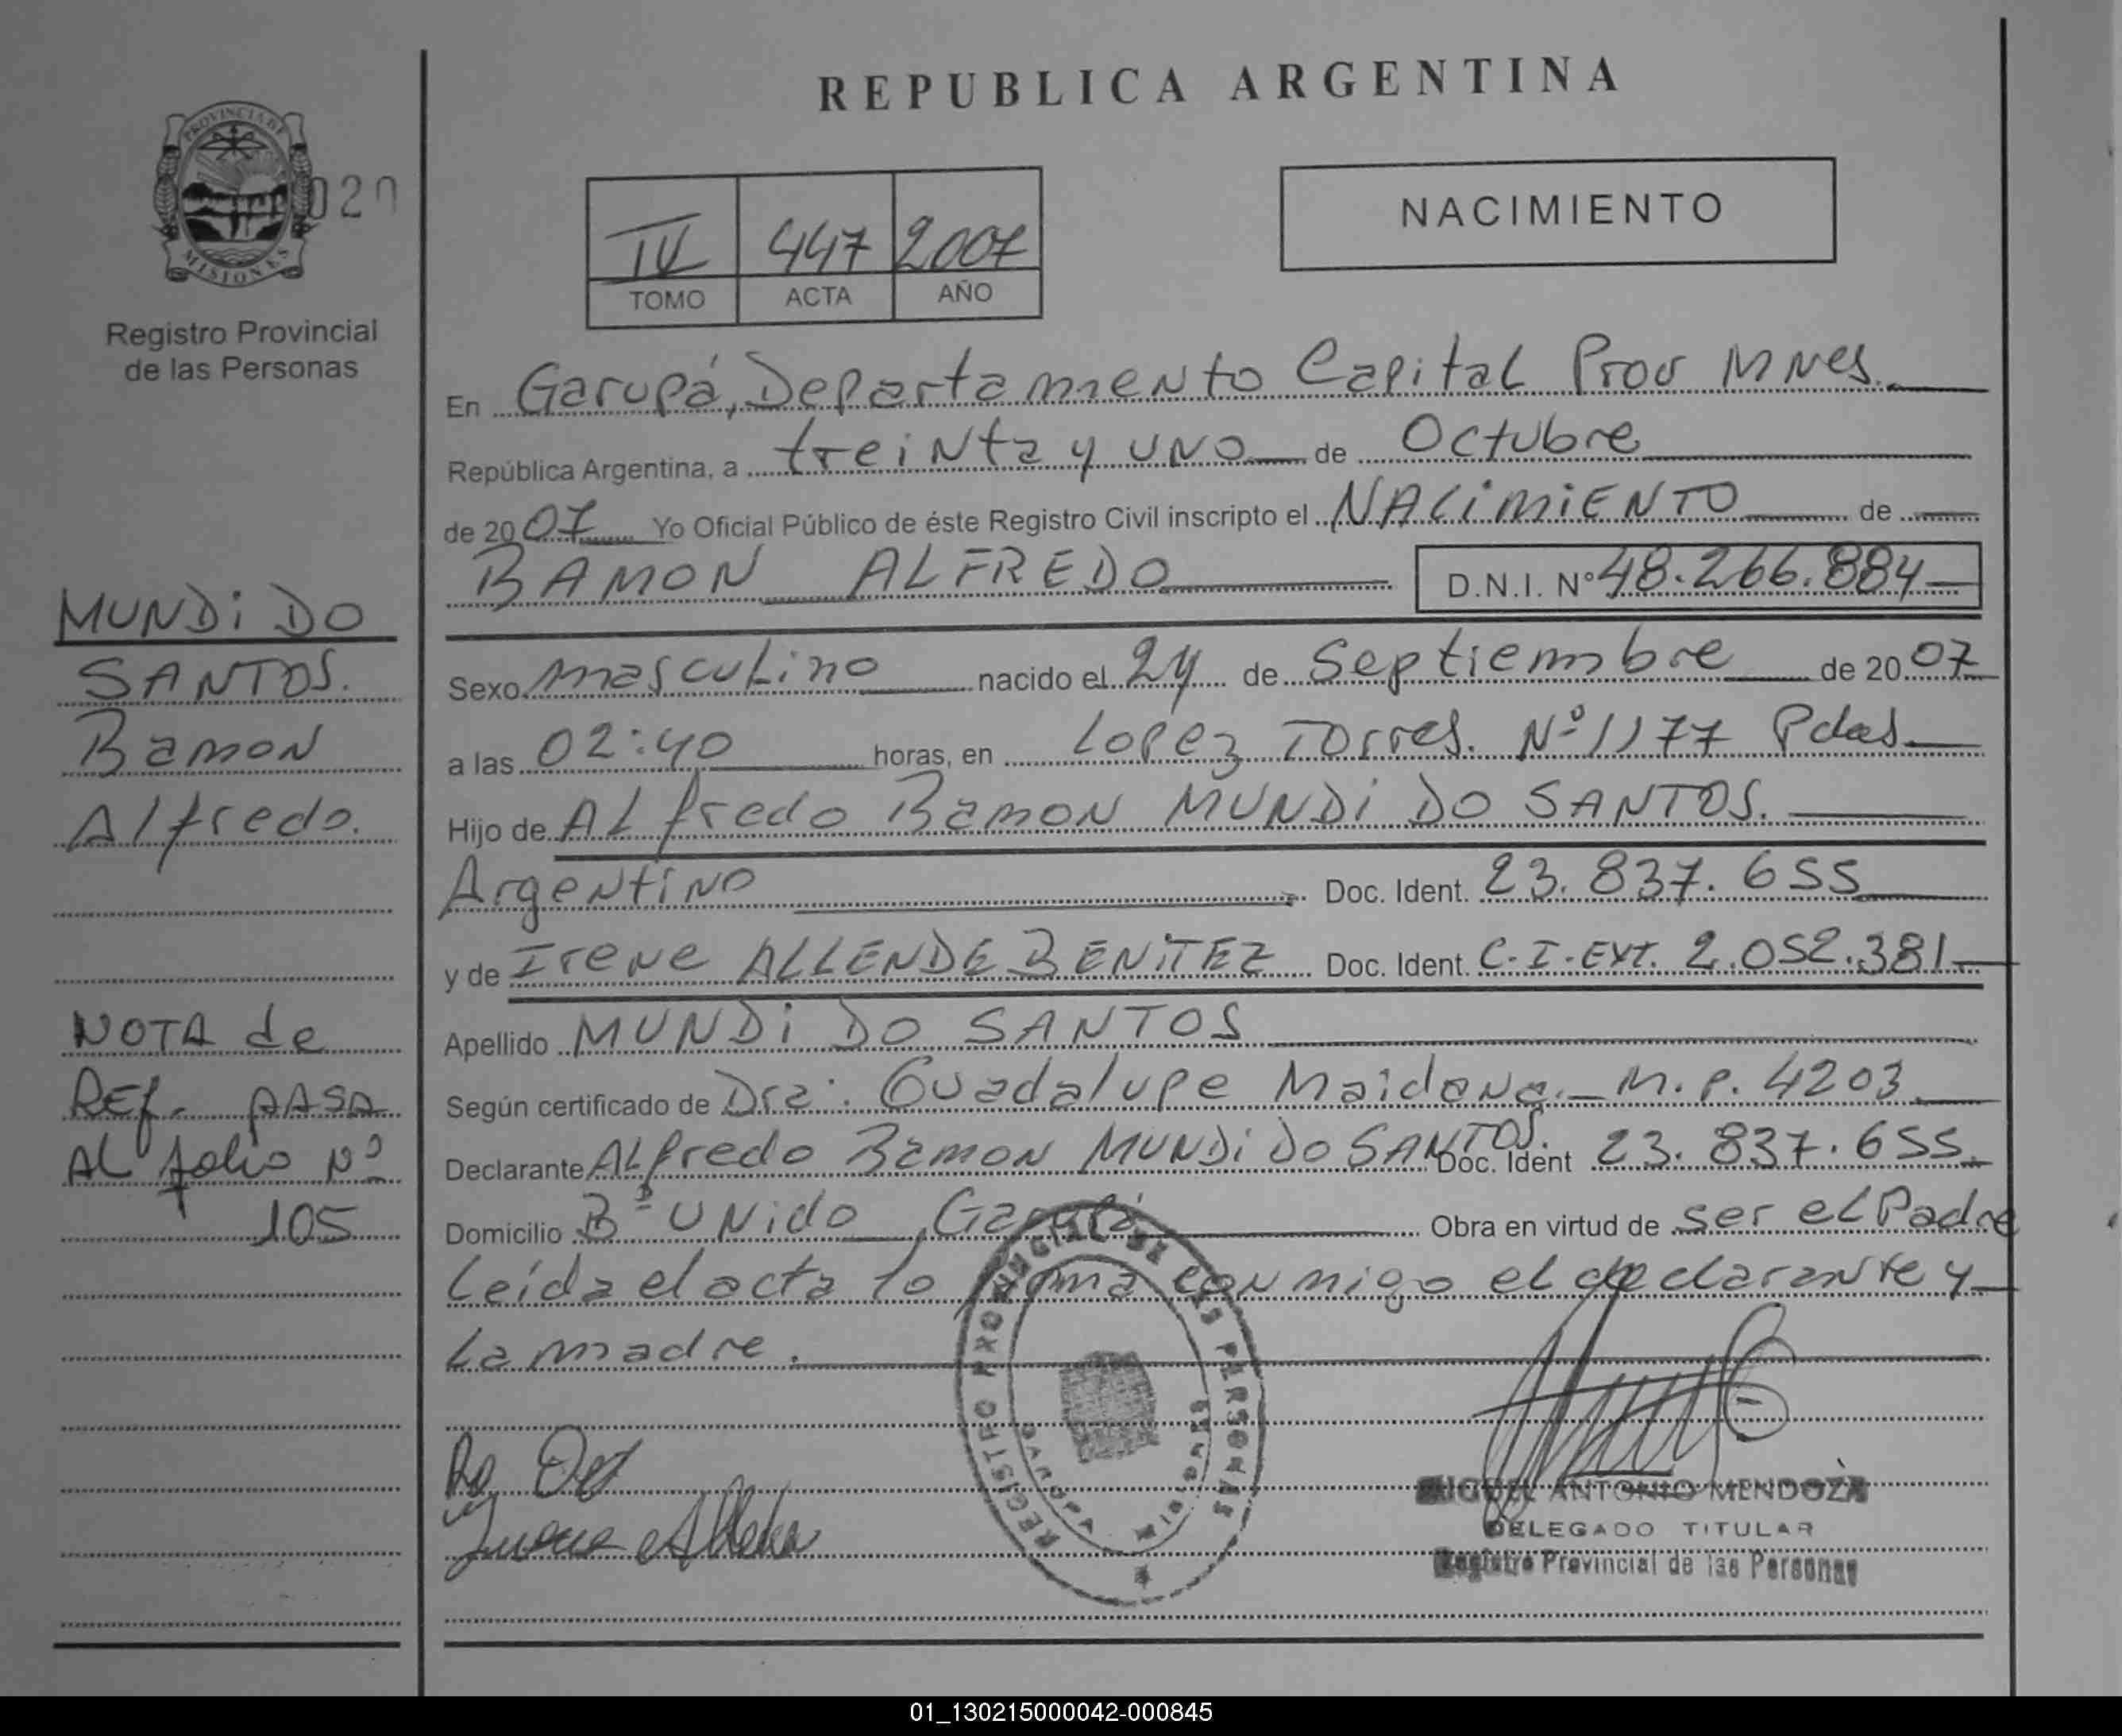 REPUBLICA ARGENTINA
PROVINCIA DE
MISIONES
020
Registro Provincial
de las Personas
NACIMIENTO
IV 447 2007
TOMO ACTA AÑO
En Garupá, Departamento Capital Prov Mnes.
República Argentina, a treinta y uno de Octubre
de 2007 Yo Oficial Público de éste Registro Civil inscripto el NACIMIENTO de
RAMON ALFREDO D.N.I. Nº 48.266.884
MUNDI DO
SANTOS.
Ramon
Alfredo.
Sexo masculino nacido el 24 de Septiembre de 2007
a las 02:40 horas, en Lopez Torres. Nº 1177 Pdas
Hijo de Alfredo Ramon MUNDI DO SANTOS.
Argentino Doc. Ident. 23.837.655
y de Irene ALLENDE BENITEZ Doc. Ident. C.I. Ext. 2.052.381
Apellido MUNDI DO SANTOS
Según certificado de Dra: Guadalupe Maidana. M.P. 4203
Declarante Alfredo Ramon MUNDI DO SANTOS. Doc. Ident 23.837.655.
Domicilio Bº Unido, Garupá Obra en virtud de ser el Padre
Leída el acta lo firma conmigo el declarante y
la madre.
NOTA de
REf. PASA
AL folio Nº
105
REGISTRO PROVINCIAL DE LAS PERSONAS
GARUPA
MISIONES
MIGUEL ANTONIO MENDOZA
DELEGADO TITULAR
Registro Provincial de las Personas
01_130215000042-000845